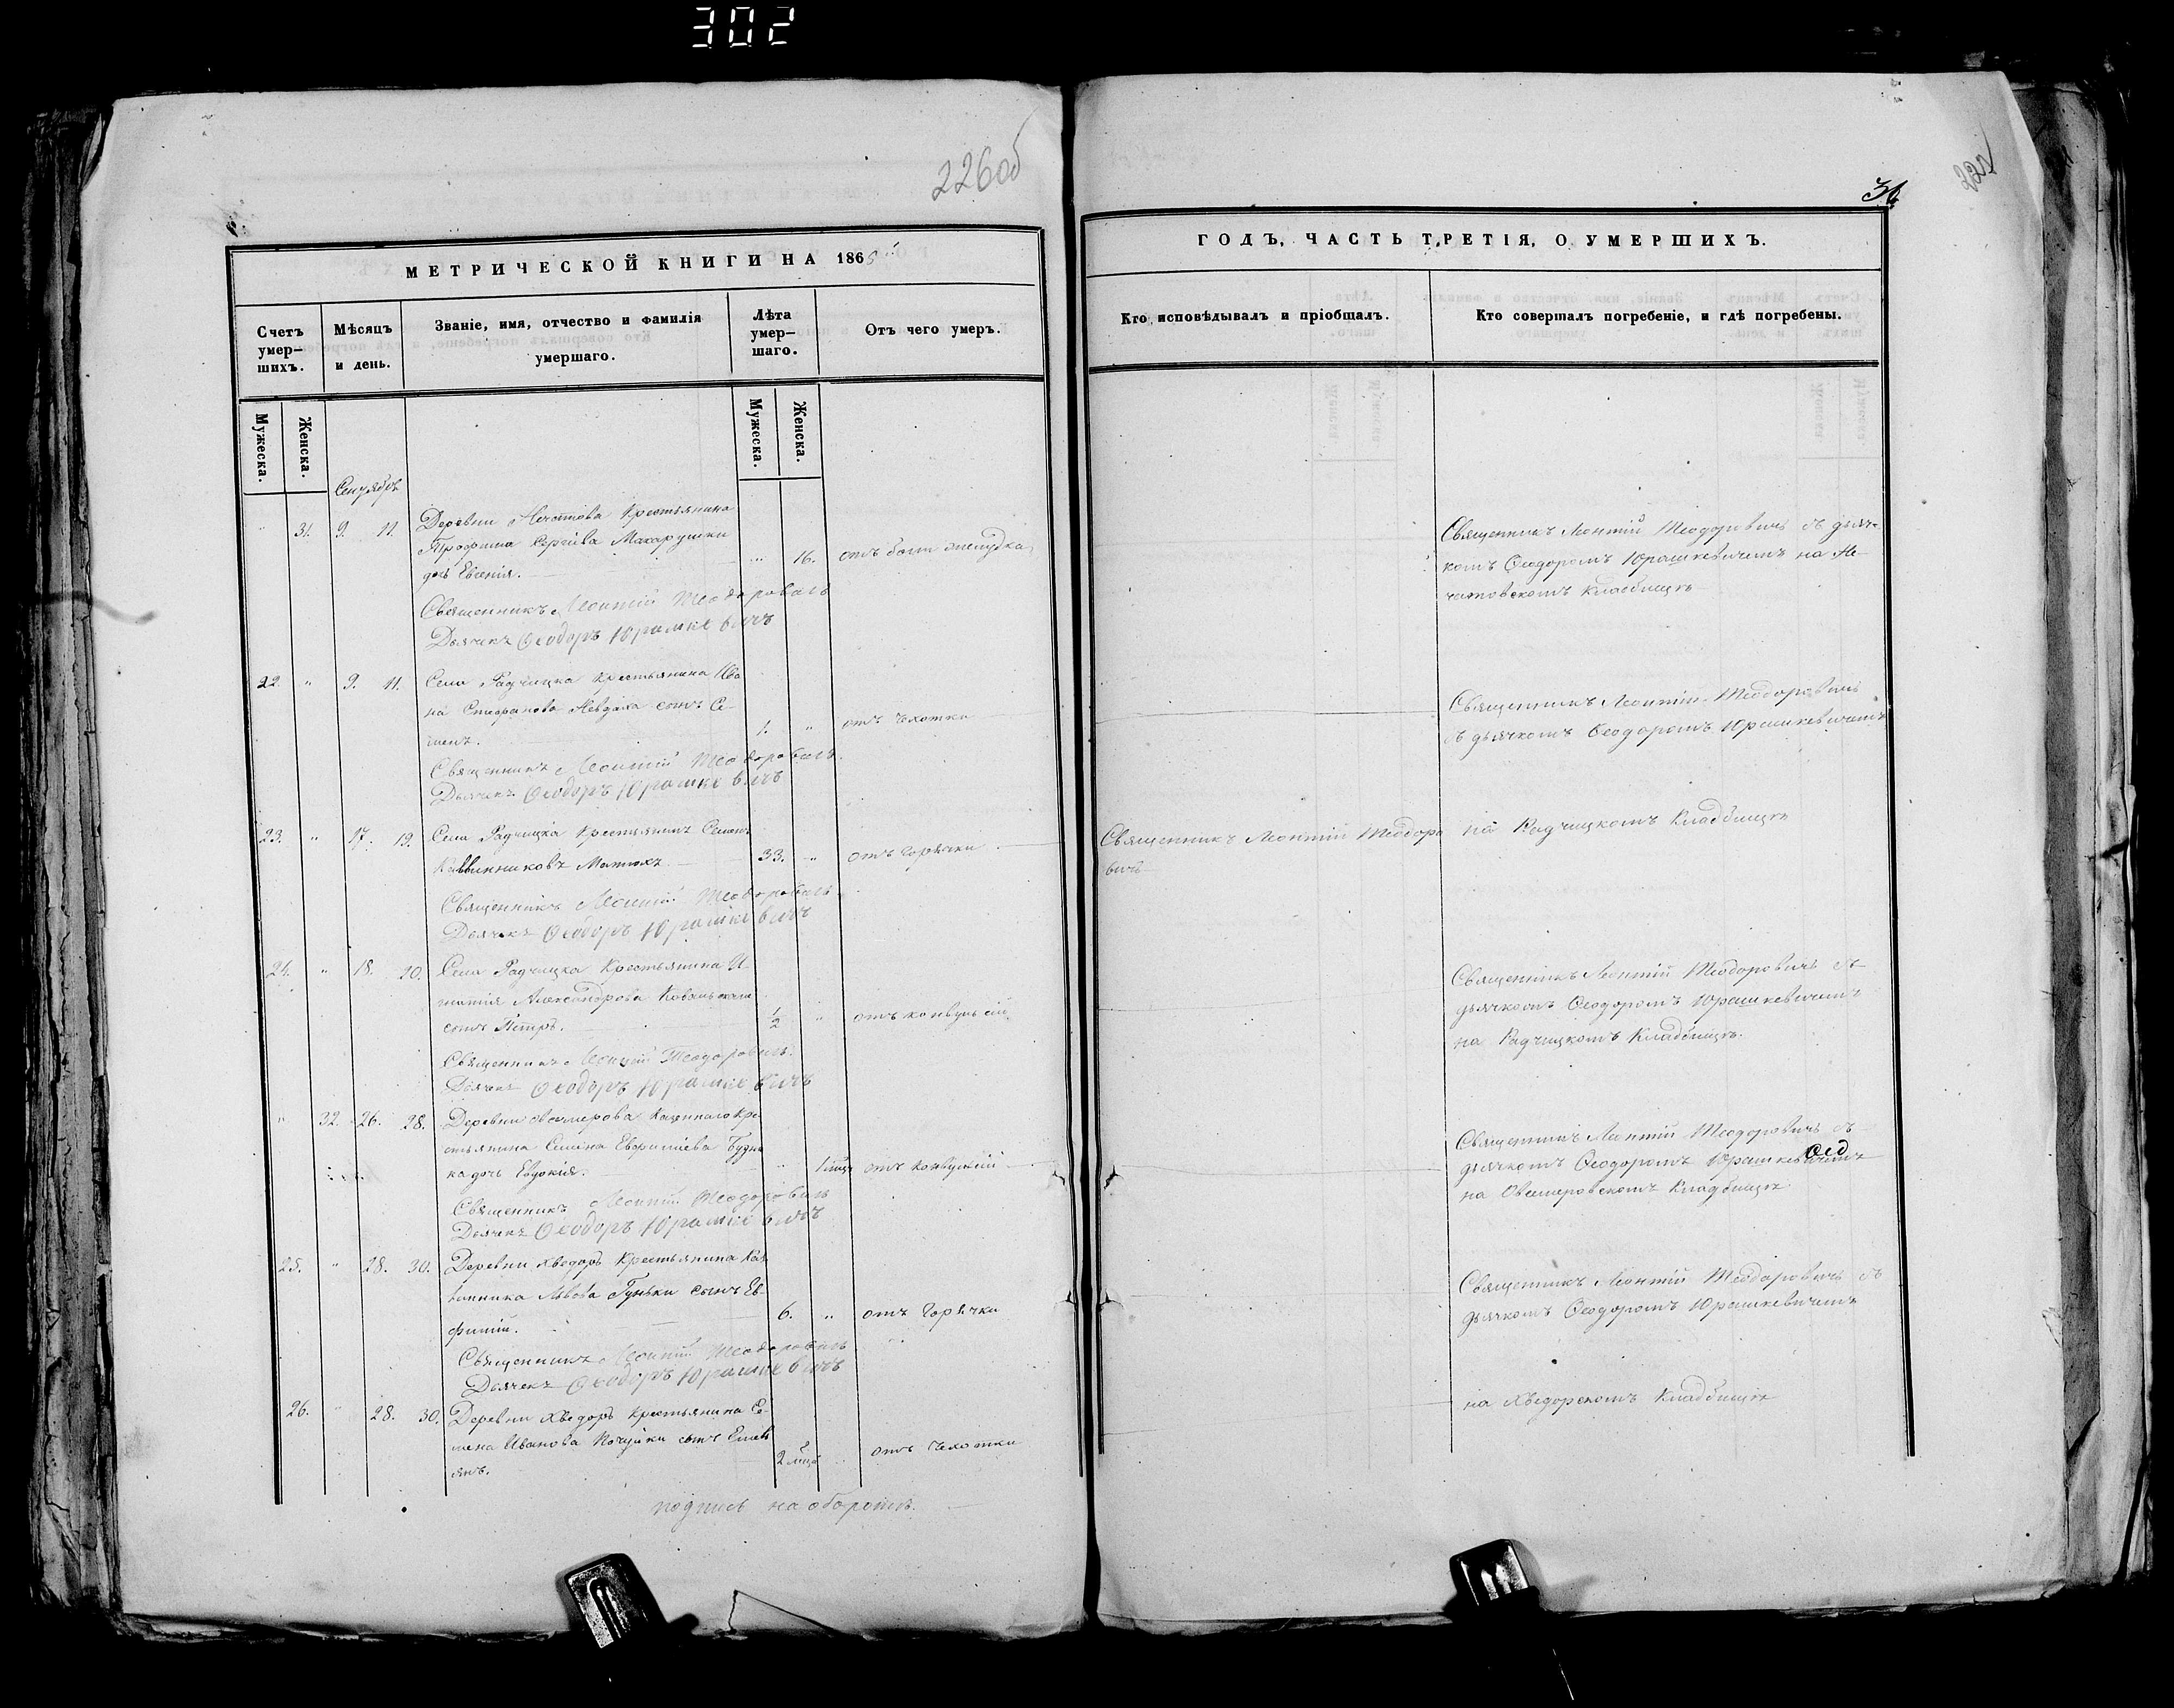 302
226об
МЕТРИЧЕСКОЙ КНИГИ НА 1865
Счетъ умер-шихъ.
Мѣсяцъ и день.
Званіе, имя, отчество и фамилія умершаго.
Лѣта умер-шаго.
Отъ чего умеръ.
Мужеска.
Женска.
Мужеска.
Женска.
Сентябрь
31. 9. 11. Деревни Нечатова Крестьянина
Трофима Сергіева Макарушки
дочь Евгенія. 16. отъ боли желудка
Священникъ Леонтій Теодоровичъ
Дьячекъ Ѳеодоръ Юрашкевичъ
22. " 9. 11. Села Радчицка Крестьянина Ива
на Стефанова сынъ Се-
менъ. 1. " отъ чахотки
Священникъ Леонтій Теодоровичъ
Дьячекъ Ѳеодоръ Юрашкевичъ
23. " 17. 19. Села Радчицка Крестьянинъ Семенъ
33. " отъ горячки
Священникъ Леонтій Теодоровичъ
Дьячекъ Ѳеодоръ Юрашкевичъ
24. " 18. 20. Села Радчицка Крестьянина И-
гнатія Александрова
сынъ Петръ. 1/2 " отъ конвульсій
Священникъ Леонтій Теодоровичъ
Дьячекъ Ѳеодоръ Юрашкевичъ
" 32. 26. 28. Деревни Казеннаго Кре-
стьянина Семена
ка дочь Евдокія. отъ конвульсій
Священникъ Леонтій Теодоровичъ
Дьячекъ Ѳеодоръ Юрашкевичъ
25. " 28. 30. Деревни Хведоръ Крестьянина Кал-
линника Львова Гуньки сынъ Ев-
фимій. 6. " отъ горячки
Священникъ Леонтій Теодоровичъ
Дьячекъ Ѳеодоръ Юрашкевичъ
26. " 28. 30. Деревни Хведоръ Крестьянина Се-
мена Иванова сынъ Емель
янъ. 2 отъ чахотки
подпись на оборотѣ.
ГОДЪ, ЧАСТЬ ТРЕТІЯ, О УМЕРШИХЪ.
Кто исповѣдывалъ и пріобщалъ.
Кто совершалъ погребеніе, и гдѣ погребены.
Священникъ Леонтій Теодоровичъ съ дьяч-
комъ Ѳеодоромъ Юрашкевичемъ на Не-
чатовскомъ кладбищѣ
Священникъ Леонтій Теодоровичъ
съ дьячкомъ Ѳеодоромъ Юрашкевичемъ
Священникъ Леонтій Теодоро
вичъ
на Радчицкомъ Кладбищѣ
Священникъ Леонтій Теодоровичъ съ
дьячкомъ Ѳеодоромъ Юрашкевичемъ
на Радчицкомъ Кладбищѣ.
Священникъ Леонтій Теодоровичъ съ
дьячкомъ Ѳеодоромъ Юрашкевичемъ
на Кладбищѣ
Священникъ Леонтій Теодоровичъ съ
дьячкомъ Ѳеодоромъ Юрашкевичемъ
на Хведорскомъ Кладбищѣ